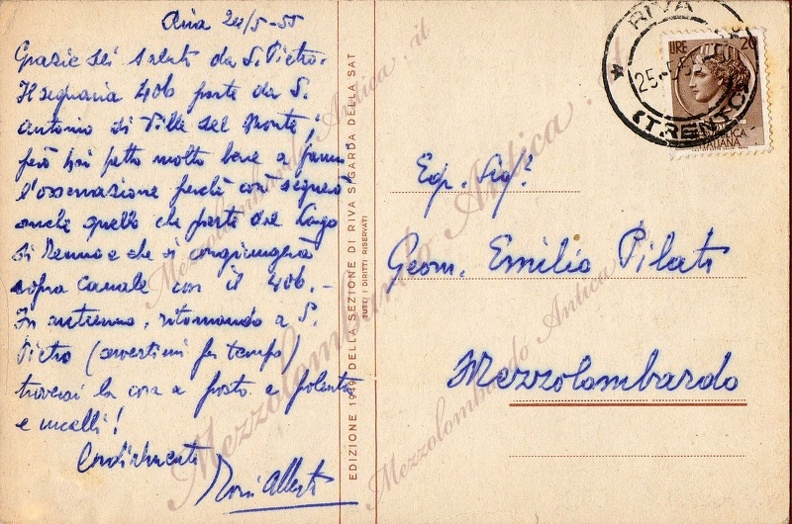 Riva 24/5-55
Grazie dei saluti da S. Pietro.
Il segnavia 406 parte da S.
Antonio di Ville del Monte,
però hai fatto molto bene a farmi
l'osservazione perché così segnerò
anche quello che parte dal Lago
di Tenno e che si congiungerà
sopra Canale con il 406.-
In autunno, ritornando a S.
Pietro (avvertimi per tempo)
troverai la cosa a posto e polenta
e uccelli!
Cordialmente
EDIZIONE DELLA SEZIONE DI RIVA S/GARDA DELLA SAT
TUTTI I DIRITTI RISERVATI
RIVA
25-5-55
(TRENTO)
LIRE 20
REPUBBLICA
ITALIANA
Egr. Sig.
Geom. Emilio Pilati
Mezzolombardo
Mezzolombardo Antica.it
Mezzolombardo Antica.it
Mezzolombardo Antica.it